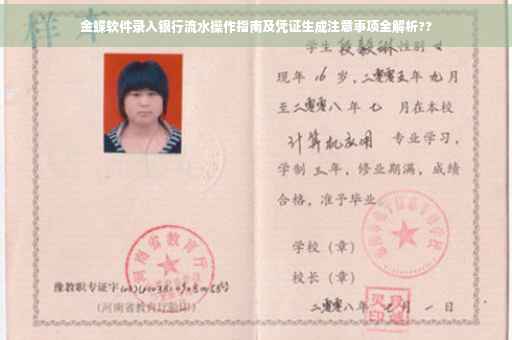 金蝶软件录入银行流水操作指南及凭证生成注意事项全解析??
样本
学生段毅琳性别女
现年16岁,二零零五年九月
至二零零八年七 月在本校
计算机应用 专业学习,
学制三年,修业期满,成绩
合格,准予毕业。
学校(章)
校长(章)
二零零八年 月一日
河南省教育厅
豫教职专证字
(河南省教育厅验印)